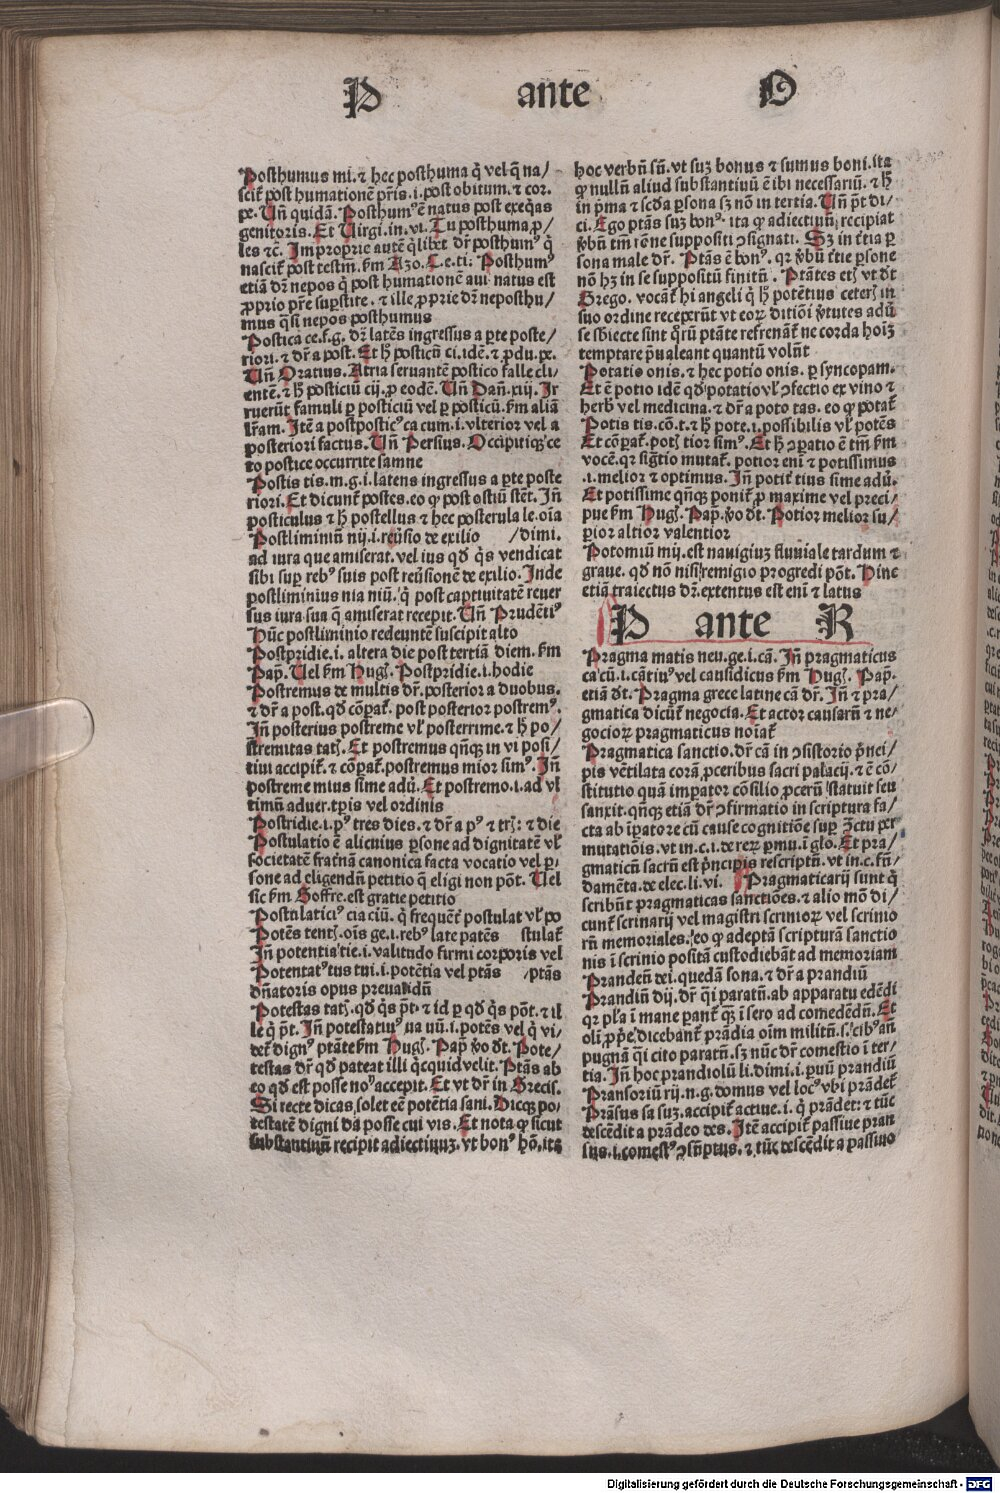 P ante O
Posthumus mi. ⁊ hec posthuma q̇ vel q̄ na/
scit᷑ post humationē pr̄is .i. post obitum. ⁊ cor.
pe. Un̄ quidā. Posthumꝰ ē natus post exeq̇as
genitoris. Et Uirgi. in. vi. Tu posthuma ꝓ/
les ⁊c̄. Improprie autē q̇libet dr̄ posthumꝰ q̇
nascit᷑ post testm̄. ẜm Azo. C. e. ti: Posthumꝰ
etiā dr̄ nepos q̇ post humationē aui natus est
ꝓprio pr̄e suꝑstite. ⁊ ille ꝓprie dr̄ neposthu/
mus q̄si nepos posthumus
Postica ce. f. g. dr̄ latēs ingressus a ꝑte poste/
riori. ⁊ dr̄ a post. Et h̄ posticū ci. idē. ⁊ ꝓdu. pe.
Un̄ Oratius. Atria seruantē postico falle cli/
entē. ⁊ h̄ posticiū cij. ꝓ eodē. Un̄ Dan̄. xiij. Ir
ruerūt famuli ꝑ posticiū vel ꝑ posticū. ẜm aliā
lr̄am. Itē a post posticꝰ ca cum .i. vlterior vel a
posteriori factus. Un̄ Persius. Occipitiqꝫ ce
to postice occurrite samne
Postis tis. m. g. i. latens ingressus a ꝑte poste
riori. Et dicunt᷑ postes. eo ꝙ post ostiū stēt. In̄
posticulus ⁊ h̄ postellus ⁊ hec posterula le. oīa
Postliminiū nij .i. reu̇sio de exilio /dimi.
ad iura que amiserat. vel ius qd̄ q̇s vendicat
sibi suꝑ rebꝰ suis post reu̇sionē de exilio. Inde
postliminius nia niū. q̇ post captiuitatē reuer
sus iura sua q̄ amiserat recepit. Un̄ Prudētiꝰ
Hūc postliminio redeuntē suscipit alto
Postpridie .i. altera die post tertiā diem. ẜm
Pap̄. Uel ẜm Hugꝭ. Postpridie .i. hodie
Postremus de multis dr̄. posterior a duobus.
⁊ dr̄ a post. qd̄ cōꝑat᷑. post posterior postremꝰ.
In̄ posterius postreme vl̓ posterrime. ⁊ h̄ po/
stremitas tatꝭ. Et postremus qn̄qꝫ in vi posi/
tiui accipit᷑. ⁊ cōꝑat᷑. postremus mior simꝰ. In̄
postreme mius sime adu̇. Et postremo .i. ad vl
timū aduer. tꝑis vel ordinis
Postridie .i. pꝰ tres dies. ⁊ dr̄ a pꝰ ⁊ trꝭ: ⁊ die
Postulatio ē alicuius ꝑsone ad dignitatē vl̓
societatē fratnā canonica facta vocatio vel ꝑ.
sone ad eligendū petitio q̄ eligi non pōt. Uel
sic ẜm Goffre. est gratie petitio
Postulaticiꝰ cia ciū. q̇ frequēt᷑ postulat vl̓ po
Potēs tentꝭ. oīs ge. i. rebꝰ late patēs stulat᷑
In̄ potentia tie .i. valitudo firmi corporis vel
Potentatꝰ tus tui .i. potētia vel ptās /ptās
dn̄atoris opus preualidū
Potestas tatꝭ. qd̄ q̇s pt̄. ⁊ id ꝑ qd̄ q̇s pōt. ⁊ il
le q̇ pt̄. In̄ potestatiuꝰ ua uū .i. potēs vel q̇ vi/
det᷑ dignꝰ ptāte ẜm Hugꝭ. Pap̄ v̇o dt̄. Pote/
testas dr̄ qd̄ pateat illi q̇cquid velit. Ptās ab
eo qd̄ est posse noꝰ accepit. Et vt dr̄ in Grecis.
Si recte dicas solet eē potētia sani. Dicqꝫ po/
testatē digni da posse cui vis. Et nota ꝙ sicut
substantiuū recipit adiectiuuꝫ. vt bonꝰ hō. ita
hoc verbū sū. vt suꝫ bonus ⁊ sumus boni. ita
ꝙ nullū aliud substantiuū ē ibi necessariū. ⁊ h̄
in p̄ma ⁊ scd̄a ꝑsona sꝫ nō in tertia. Un̄ pt̄ di/
ci. Ego ptās suꝫ bonꝰ. ita ꝙ adiectiuū recipiat
v̇bū tm̄ rōne suppositi ɔsignati. Sꝫ in t̄tia ꝑ
sona male dr̄. Ptās ē bonꝰ. qꝛ v̇bū t̄tie ꝑsone
nō hꝫ in se suppositū finitū. Ptātes etꝭ vt dt̄
Grego. vocāt᷑ hi angeli q̇ h̄ potētius ceterꝭ in
suo ordine receperūt vt eoꝝ ditiōi v̇tutes adu̇
se sb̄iecte sint q̇rū ptāte refrenāt᷑ ne corda hoīꝫ
temptare p̄ualeant quantū volūt
Potatio onis. ⁊ hec potio onis. ꝑ syncopam.
Et ē potio idē qd̄ potatio vl̓ ɔfectio ex vino ⁊
herb̓ vel medicina. ⁊ dr̄ a poto tas. eo ꝙ potat᷑
Potis tis. cō. t. ⁊ h̄ pote .i. possibilis vl̓ potēs
Et cōꝑat᷑. potꝭ tior simꝰ. Et h̄ ɔꝑatio ē tm̄ ẜm
vocē. qꝛ sig̓tio mutat᷑. potior eni ⁊ potissimus
.i. melior ⁊ optimus. In̄ potit᷑ tius sime adu̇.
Et potissime qn̄qꝫ ponit᷑ ꝓ maxime vel preci/
pue ẜm Hugꝭ. Pap̄. v̇o dt̄. Potior melior su/
perior altior valentior
Potomiū mij. est nauigiuꝫ fluuiale tardum ⁊
graue. qd̄ nō nisi remigio progredi pōt. Hinc
etiā traiectus dr̄. extentus est eni ⁊ latus
P ante R
Pragma matis neu. ge. i. cā. In̄ pragmaticus
ca cū .i. cātiuꝰ vel causidicus ẜm Hugꝭ. Pap̄.
etiā dt̄. Pragma grece latine cā dr̄. In̄ ⁊ pra/
gmatica dicūt᷑ negocia. Et actor causarū ⁊ ne/
gocioꝝ pragmaticus noīat᷑
Pragmatica sanctio. dr̄ cā in ɔsistorio p̄nci/
pis vētilata corā ꝓceribus sacri palacij. ⁊ ē cō/
stitutio quā imꝑator cōsilio ꝓcerū statuit seu
sanxit. qn̄qꝫ etiā dr̄ ɔfirmatio in scriptura fa/
cta ab īꝑatore cū cause cognitiōe suꝑ ɔ̄ctu per
mutatiōis. vt in. c. i. de reꝝ ꝑmu. ī glo. Et pra/
gmaticū sacrū est p̄ncipis rescriptū. vt in. c. fū/
damēta. de elec. li. vi. Pragmaticarij sunt q̇
scribūt pragmaticas sanctiōes. ⁊ alio mō di/
cunt᷑ scrinarij vel magistri scrinioꝝ vel scrinio
rū memoriales. eo ꝙ adeptā scripturā sanctio
nis ī scrinio positā custodiebāt ad memoriam
Prandeū dei. quedā sona. ⁊ dr̄ a prandiū
Prandiū dij. dr̄ q̄i paratū. ab apparatu edēdi
qꝛ pl̓a ī mane parāt᷑ qꝫ ī sero ad comedēdū. Et
oli ꝓpe dicebant᷑ prādia oīm militū. s. cibꝰ an̄
pugnā q̄i cito paratū. sꝫ nūc dr̄ comestio ī ter/
tia. In̄ hoc prandiolū li. dimi. i. puū prandiū
Pransoriū rij. n. g. domus vel locꝰ vbi prādet᷑
Prāsus sa suꝫ. accipit᷑ actiue. i. q̇ prādet: ⁊ tūc
descēdit a prādeo des. Itē accipit᷑ passiue pran
sus .i. comestꝰ ɔsūptus. ⁊ tūc descēdit a passiuo
Digitalisierung gefördert durch die Deutsche Forschungsgemeinschaft - DFG